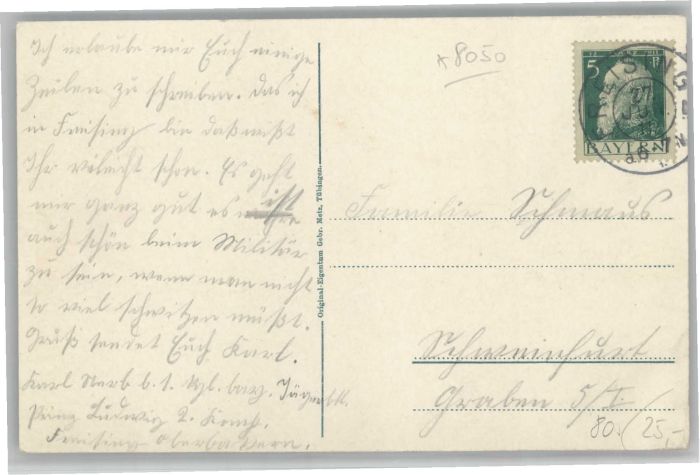 Ich erlaube mir Euch einige
Zeilen zu schreiben. Das ich
in Freising bin daß wißt
Ihr vileicht schon. Es geht
mir ganz gut es ist
auch schön beim Militär
zu sein, wenn man nicht
so viel schwitzen müßt.
Gruß sendet Euch Karl.
Karl Nerb b. 1. Kgl. bay. Jägerbtl.
Prinz Ludwig 2. Komp.
Freising Oberbayern.
Original-Eigentum Gebr. Metz, Tübingen.
* 8050
5
BAYERN
Familie Schmaus
Schweinfurt
Graben 5/I.
80.- / 25,-